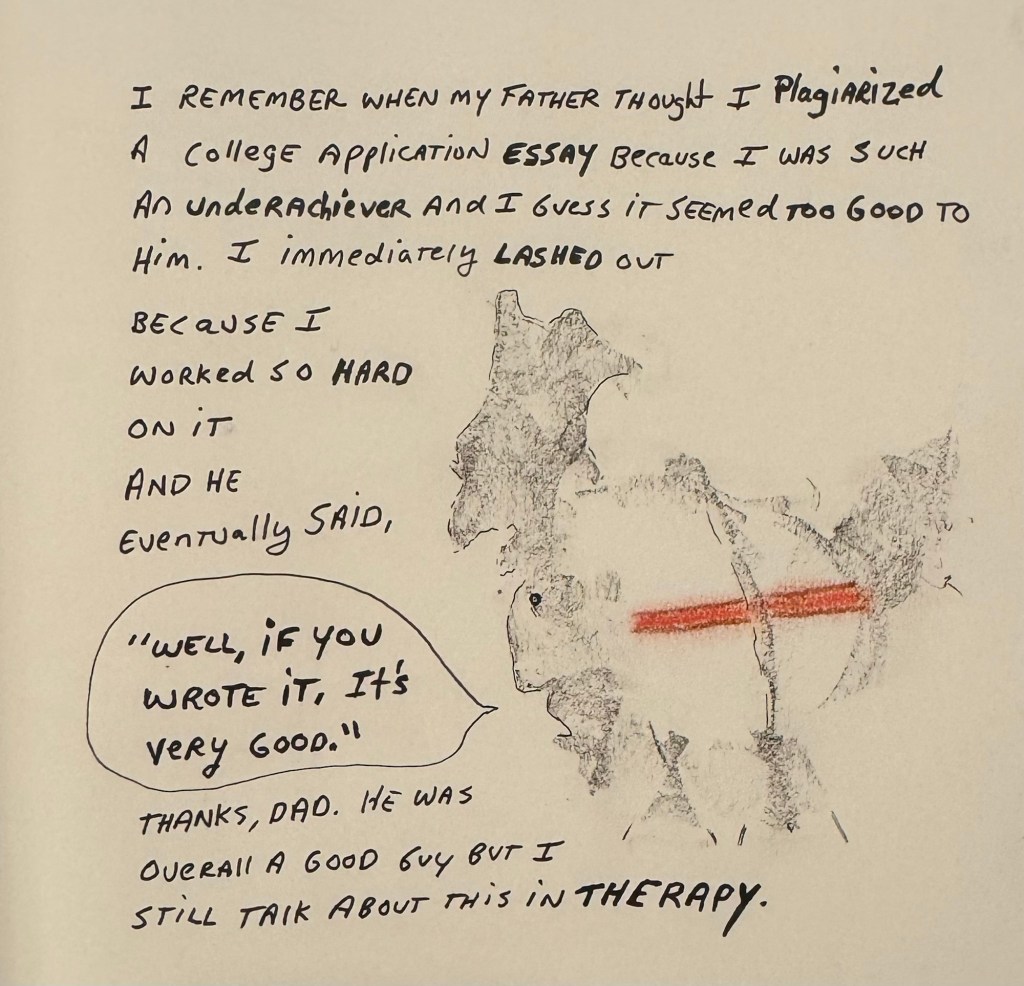 I REMEMBER WHEN MY FATHER THOught I PlagiARized
A College Application ESSAY Because I WAS SUCH
An UnderAchiever And I Guess it SEEMed TOO GOOD TO
Him. I immediately LASHED OUT
BECAUSE I
WORKed SO HARD
ON iT
AND HE
Eventually SAID,
"WELL, iF YOU
WROTE iT, It's
VeRY GOOD."
THANKS, DAD. HE WAS
OVERAll A GOOD GUY BUT I
STiLL TALK ABOUT THiS in THERAPY.